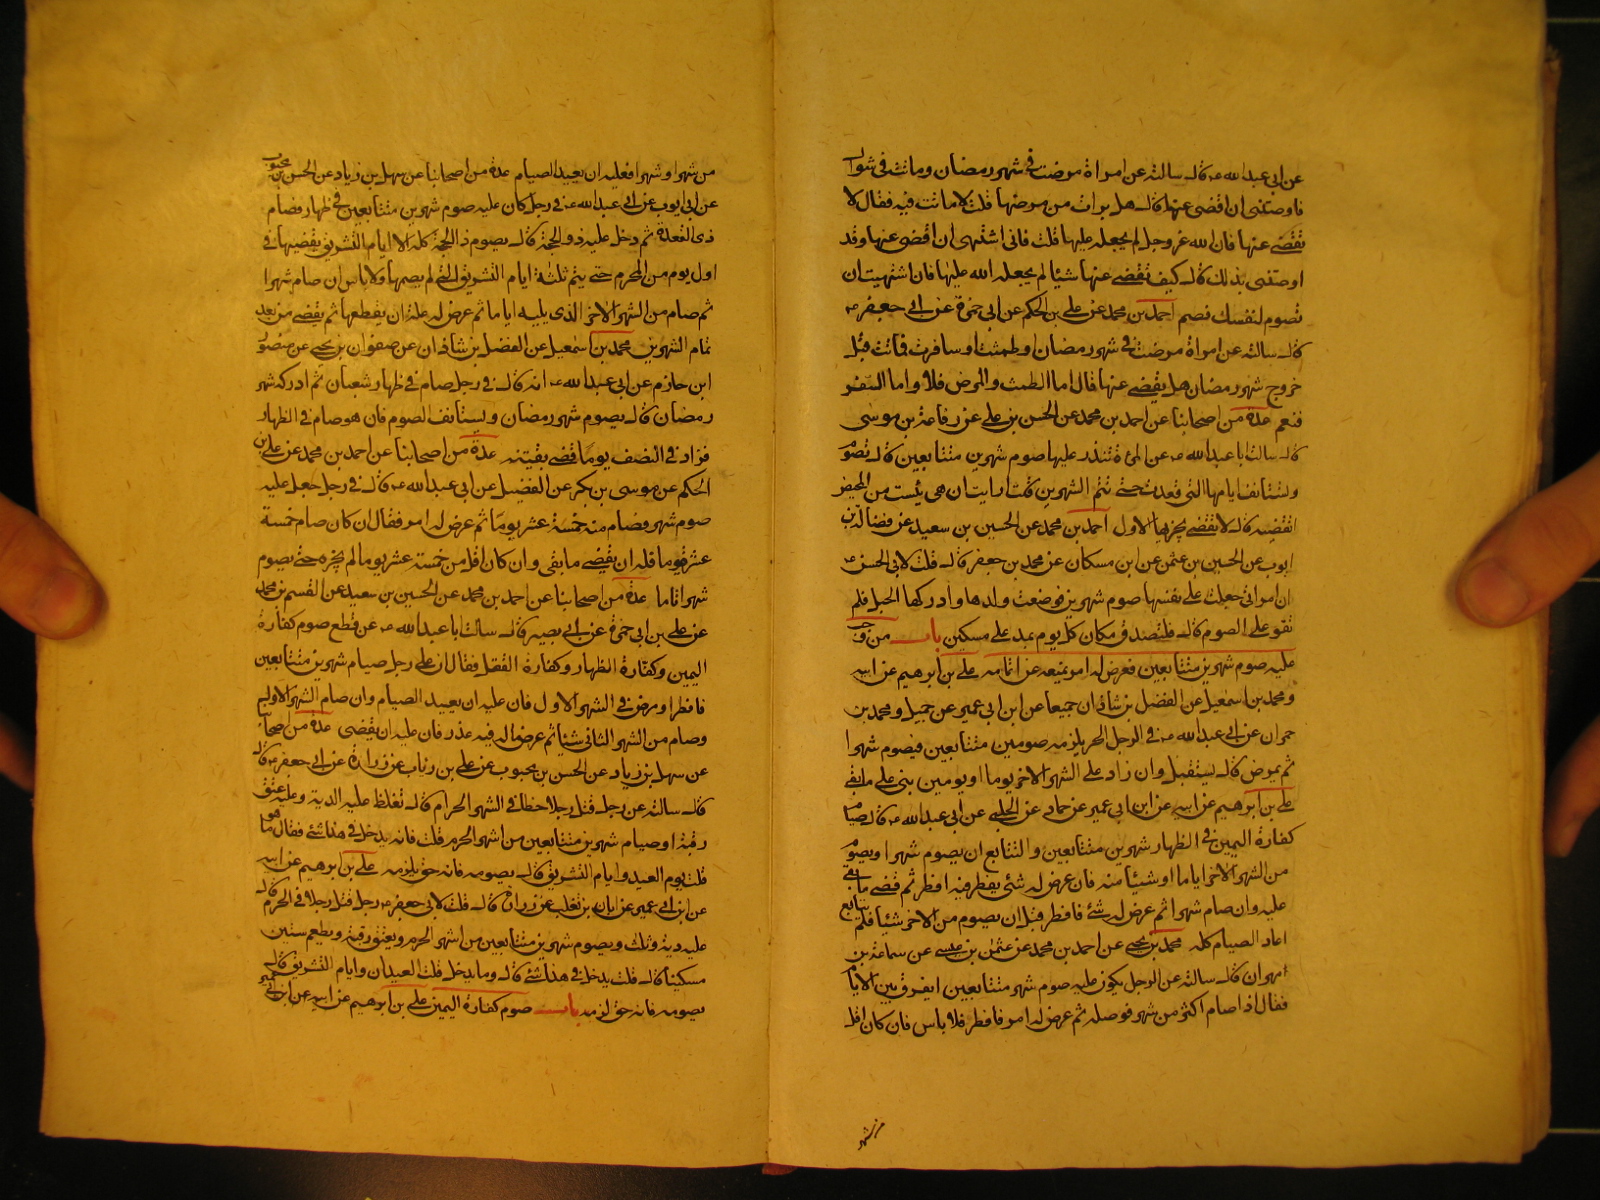 عن ابي عبد الله ع قال سالته عن امراة مرضت في شهر رمضان وماتت في شوال
فاوصتنى ان اقضى عنها قال هل برات من مرضها قلت لا ماتت فيه فقال لا
تقضى عنها فان الله عز وجل لم يجعله عليها قلت فانى اشتهى ان اقضى عنها وقد
اوصتنى بذلك قال كيف تقضى عنها شيئا لم يجعله الله عليها فان اشتهيت ان
تصوم لنفسك فصم احمد بن محمد عن على بن الحكم عن ابى حمزة عن ابى جعفر ع
قال سالته عن امراة مرضت في شهر رمضان او طمثت او سافرت فماتت قبل
خروج شهر رمضان هل يقضى عنها قال اما الطمث والمرض فلا واما السفر
فنعم عدة من اصحابنا عن احمد بن محمد عن الحسن بن على عن رفاعة بن موسى
قال سالت ابا عبد الله ع عن المراة تنذر عليها صوم شهرين متتابعين قال تصوم
وتستانف ايامها التى قعدت حتى تتم الشهرين قلت ارايت ان هى يئست من المحيض
اتقضيه قال لا تقضى يجزيها الاول احمد بن محمد عن الحسين بن سعيد عن فضالة بن
ايوب عن الحسين بن عثمن عن ابن مسكان عن محمد بن جعفر قال قلت لابى الحسن ع
ان امراتى جعلت على نفسها صوم شهرين فوضعت ولدها وادركها الحبل فلم
تقو على الصوم قال فلتصدق مكان كل يوم بمد على مسكين باب من وجب
عليه صوم شهرين متتابعين فعرض له امر يمنعه عن اتمامه على بن ابرهيم عن ابيه
ومحمد بن اسمعيل عن الفضل بن شاذان جميعا عن ابن ابى عمير عن جميل ومحمد بن
حمران عن ابى عبد الله ع في الرجل الحر يلزمه صوم شهرين متتابعين فيصوم شهرا
ثم يمرض قال يستقبل وان زاد على الشهر الاخر يوما او يومين بنى على ما بقى
على بن ابرهيم عن ابيه عن ابن ابى عمير عن حماد عن الحلبى عن ابى عبد الله ع قال صيام
كفارة اليمين في الظهار شهرين متتابعين والتتابع ان يصوم شهرا ويصوم
من الشهر الاخر اياما او شيئا منه فان عرض له شئ يفطر فيه افطر ثم قضى ما بقى
عليه وان صام شهرا ثم عرض له شئ فافطر قبل ان يصوم من الاخر شيئا فلم يتابع
اعاد الصيام كله محمد بن يحيى عن احمد بن محمد عن عثمن بن عيسى عن سماعة بن
مهران قال سالته عن الرجل يكون عليه صوم شهر متتابعين ايفرق بين الايام
فقال اذا صام اكثر من شهر فوصله ثم عرض له امر فافطر فلا باس فان كان اقل
من شهر
من شهر او شهرا فعليه ان يعيد الصيام عدة من اصحابنا عن سهل بن زياد عن الحسن بن محبوب
عن ابى ايوب عن ابى عبد الله ع في رجل كان عليه صوم شهرين متتابعين في ظهار فصام
ذى القعدة ثم دخل عليه ذو الحجة قال يصوم ذا الحجة كله الا ايام التشريق يقضيها في
اول يوم من المحرم حتى يتم ثلثة ايام التشريق التى لم يصمها ولا باس ان صام شهرا
ثم صام من الشهر الاخر الذى يليه اياما ثم عرض له علة ان يقطعها ثم يقضى من بعد
تمام الشهرين محمد بن اسمعيل عن الفضل بن شاذان عن صفوان بن يحيى عن منصور
ابن حازم عن ابى عبد الله ع انه قال في رجل صام في ظهار شعبان ثم ادركه شهر
رمضان قال يصوم شهر رمضان ويستانف الصوم فان هو صام في الظهار
فزاد في النصف يوما قضى بقيته عدة من اصحابنا عن احمد بن محمد عن على بن
الحكم عن موسى بن بكر عن الفضيل عن ابى عبد الله ع قال في رجل جعل عليه
صوم شهر فصام منه خمسة عشر يوما ثم عرض له امر فقال ان كان صام خمسة
عشر يوما فله ان يقضى ما بقى وان كان اقل من خمسة عشر يوما لم يجزه حتى يصوم
شهرا تاما عدة من اصحابنا عن احمد بن محمد عن الحسين بن سعيد عن القسم بن محمد
عن على بن ابى حمزة عن ابى بصير قال سالت ابا عبد الله ع عن قطع صوم كفارة
اليمين وكفارة الظهار وكفارة القتل فقال ان على رجل صيام شهرين متتابعين
فافطر او مرض في الشهر الاول فان عليه ان يعيد الصيام وان صام الشهر الاول
وصام من الشهر الثانى شيئا ثم عرض له فيه عذر فان عليه ان يقضى عدة من اصحابنا
عن سهل بن زياد عن الحسن بن محبوب عن على بن رئاب عن زرارة عن ابى جعفر ع قال
قال سالته عن رجل قتل رجلا خطا في الشهر الحرام قال تغلظ عليه الدية وعليه عتق
رقبة او صيام شهرين متتابعين من اشهر الحرم قلت فانه يدخل في هذا شئ فقال ما هو
قلت يوم العيد وايام التشريق قال يصومه فانه حق يلزمه على بن ابرهيم عن ابيه
عن ابن ابى عمير عن ابان بن تغلب عن زرارة قال قلت لابى جعفر ع رجل قتل رجلا في الحرم قال
عليه دية وثلث ويصوم شهرين متتابعين من اشهر الحرم ويعتق رقبة ويطعم ستين
مسكينا قال قلت يدخل في هذا شئ قال وما يدخل قلت العيدان وايام التشريق قال
يصومه فانه حق لزمه باب صوم كفارة اليمين على بن ابرهيم عن ابيه عن ابن ابى عمير